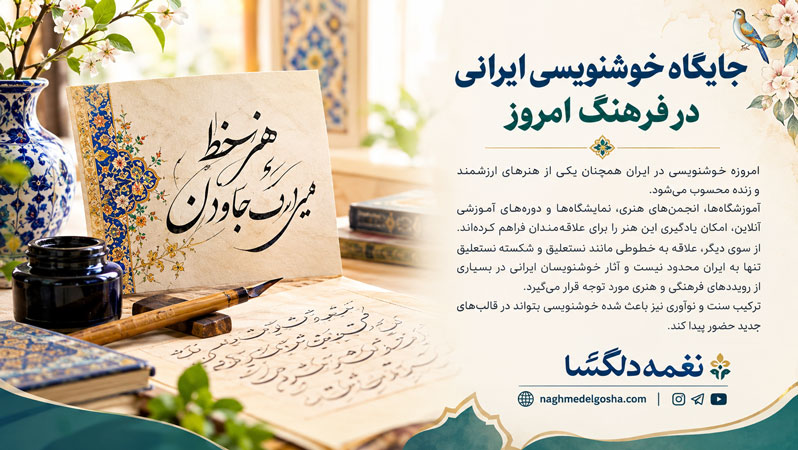 هنر خط
میراث جاودان
جایگاه خوشنویسی ایرانی
در فرهنگ امروز
امروزه خوشنویسی در ایران همچنان یکی از هنرهای ارزشمند
و زنده محسوب می‌شود.
آموزشگاه‌ها، انجمن‌های هنری، نمایشگاه‌ها و دوره‌های آموزشی
آنلاین، امکان یادگیری این هنر را برای علاقه‌مندان فراهم کرده‌اند.
از سوی دیگر، علاقه به خطوطی مانند نستعلیق و شکسته نستعلیق
تنها به ایران محدود نیست و آثار خوشنویسان ایرانی در بسیاری
از رویددهای فرهنگی و هنری مورد توجه قرار می‌گیرد.
ترکیب سنت و نوآوری نیز باعث شده خوشنویسی بتواند در قالب‌های
جدید حضور پیدا کند.
نغمه دلگشا
naghmedelgosha.com